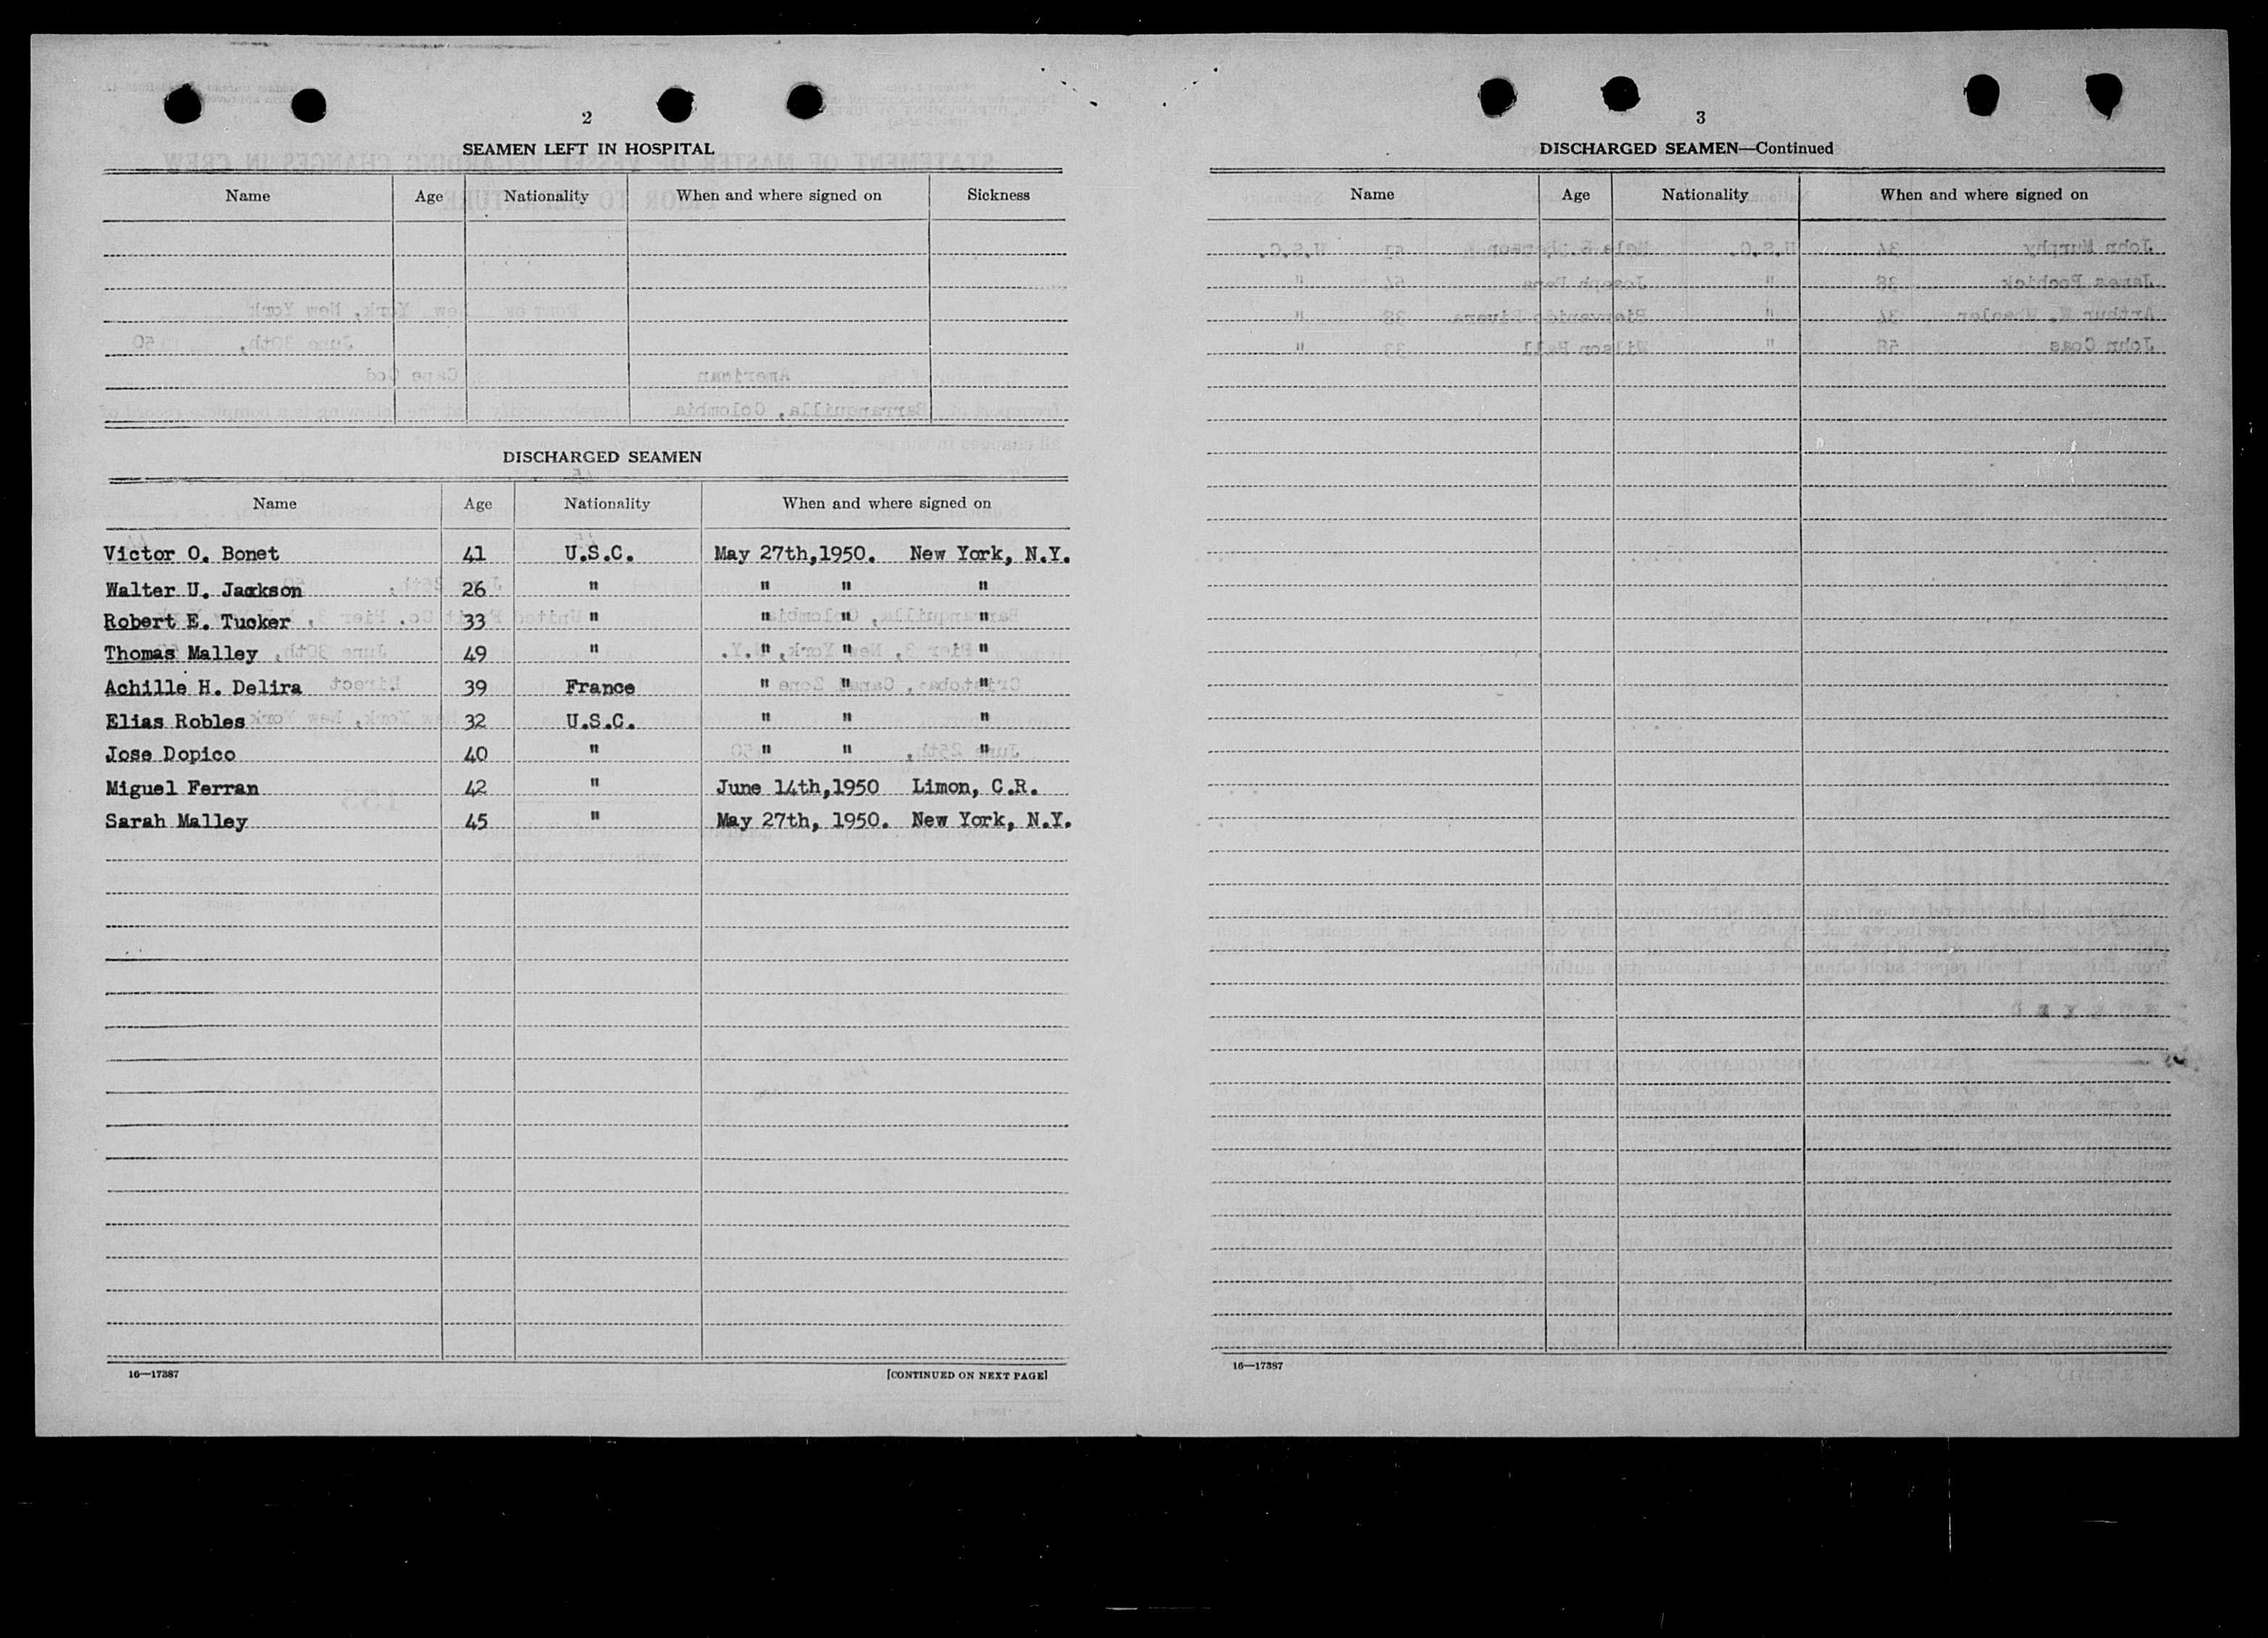 2
SEAMEN LEFT IN HOSPITAL
Name Age Nationality When and where signed on Sickness
DISCHARGED SEAMEN
Name Age Nationality When and where signed on
Victor O. Bonet 41 U.S.C. May 27th,1950. New York, N.Y.
Walter U. Jackson 26 " " " "
Robert E. Tucker 33 " " " "
Thomas Malley 49 " " " "
Achille H. Delira 39 France " " "
Elias Robles 32 U.S.C. " " "
Jose Dopico 40 " " " "
Miguel Ferran 42 " June 14th,1950 Limon, C.R.
Sarah Malley 45 " May 27th, 1950. New York, N.Y.
16—17387 [CONTINUED ON NEXT PAGE]
3
DISCHARGED SEAMEN—Continued
Name Age Nationality When and where signed on
16—17387